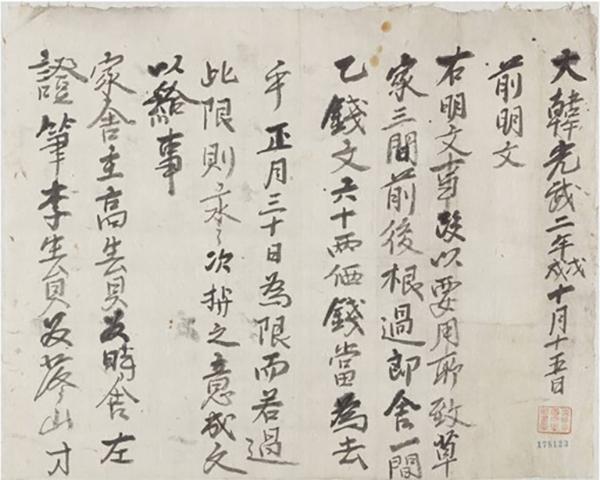 大韓光武二年戊戌十月十五日
前明文
右明文事段以要用所致草
家三間前後根過郎舍一間
乙錢文六十兩価錢當為去
乎正月三十日為限而若過
此限則永〃次持之意成文
以給事
家舍主高生員 時舍左
證筆李生員 山寸
175123